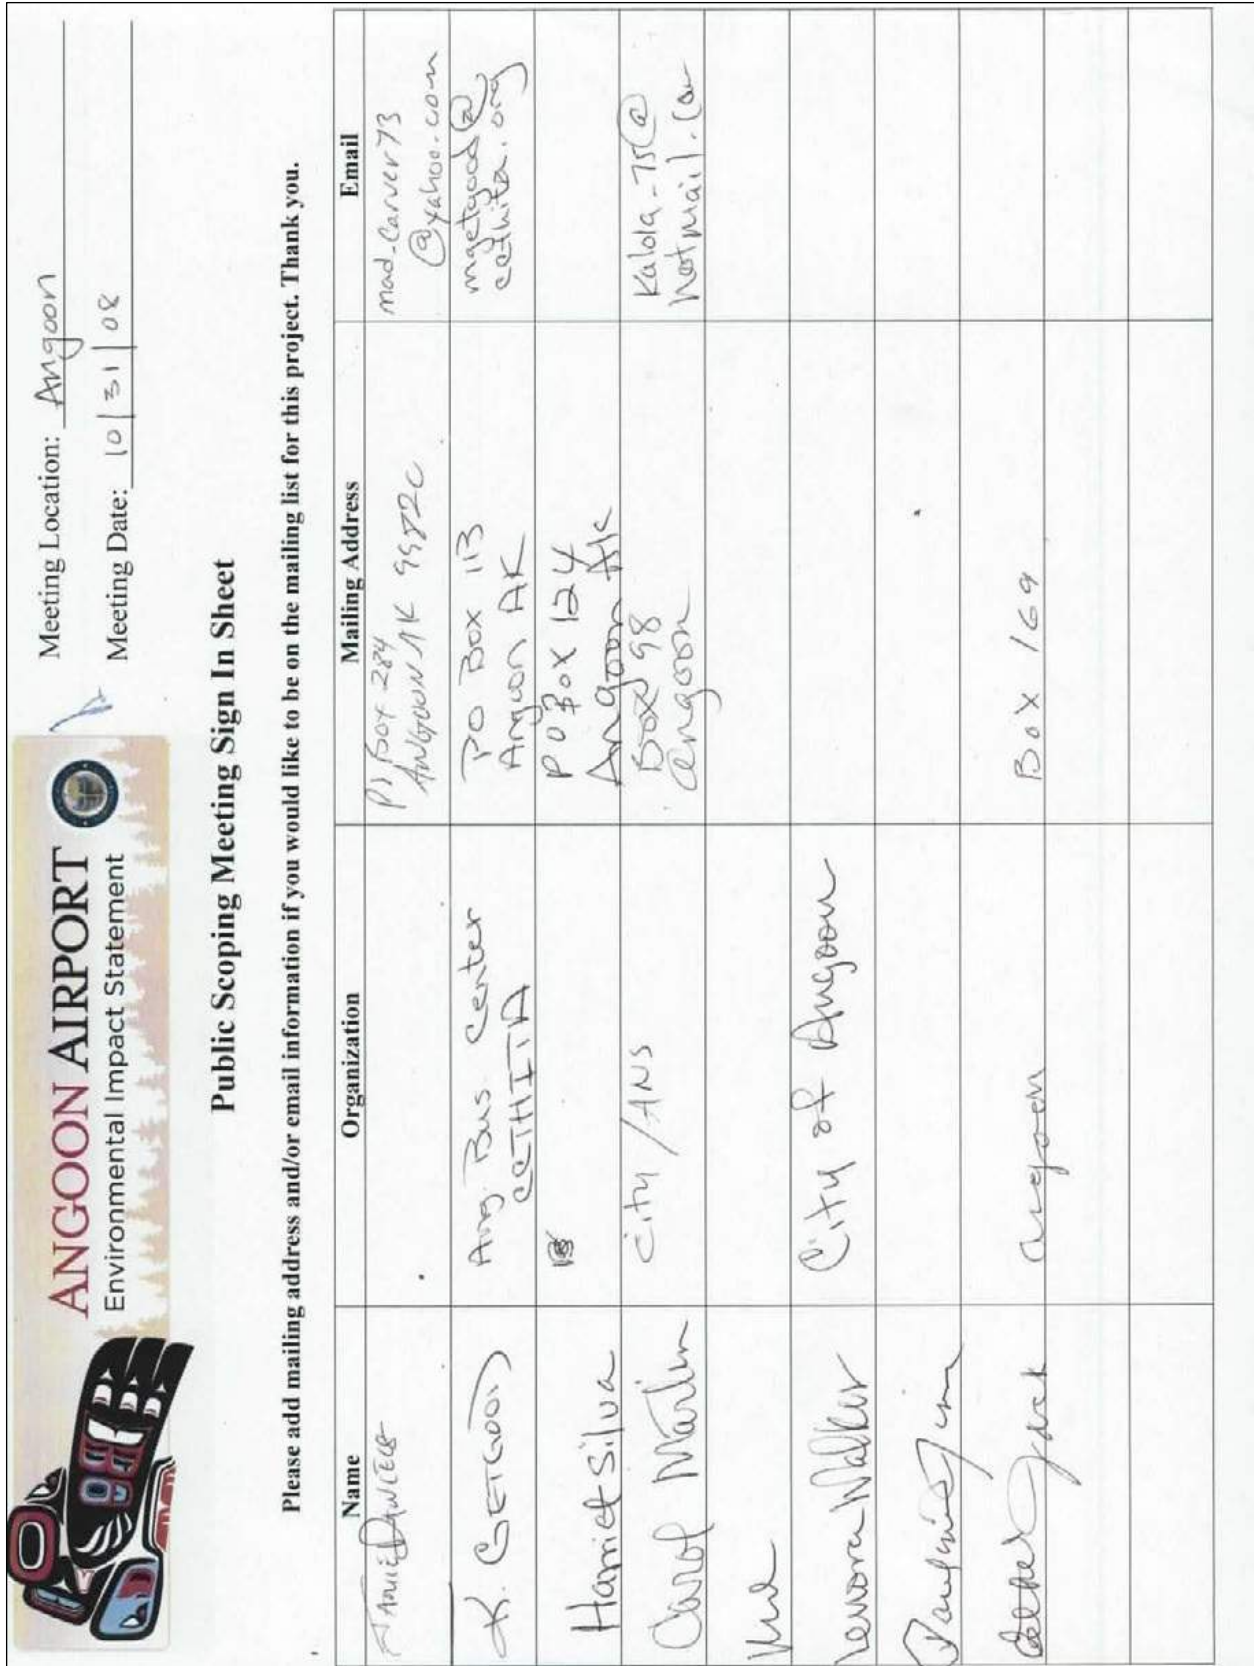 ANGOON AIRPORT
Environmental Impact Statement
Meeting Location: Angoon
Meeting Date: 10/31/08
Public Scoping Meeting Sign In Sheet
Please add mailing address and/or email information if you would like to be on the mailing list for this project. Thank you.
Name Organization Mailing Address Email
Box 284
ANGOON AK
@yahoo.com
K. GETGOOD Ang. Bus. Center PO Box 113
CCTHITA Angoon AK ccthita.org
Harriet Silva PO Box 124
Angoon Ak
Carol Martin City/ANS Box 98
angoon
Walker City of Angoon
Jim
Jack angoon Box 169